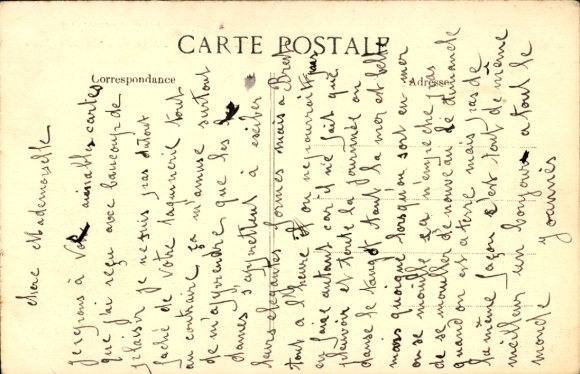 CARTE POSTALE
Correspondance
Adresse
chère Mademoiselle
je répons à vos aimables cartes
que j'ai reçu avec baucoup de
plaisir je ne suis pas du tout
faché de votre taquinerie tout
au contraire ça m'amuse surtout
de m'apprendre que les
dames s'apprettent à exiber
leurs elegantes formes mais a Brest
tout a l'heure on ne pourrait pas
en faire autant car il ne fait que
pleuvoir et toute la journnée on
danse le tango tant la mer est belle
mais quoique lorsqu'on sort en mer
on se mouille ça n'empeche pas
de se mouiller de nouveau le dimanche
quand on est a terre mais pas de
la même façon c'est tout de même
meilleur un bonjour a tout le
monde Joannès